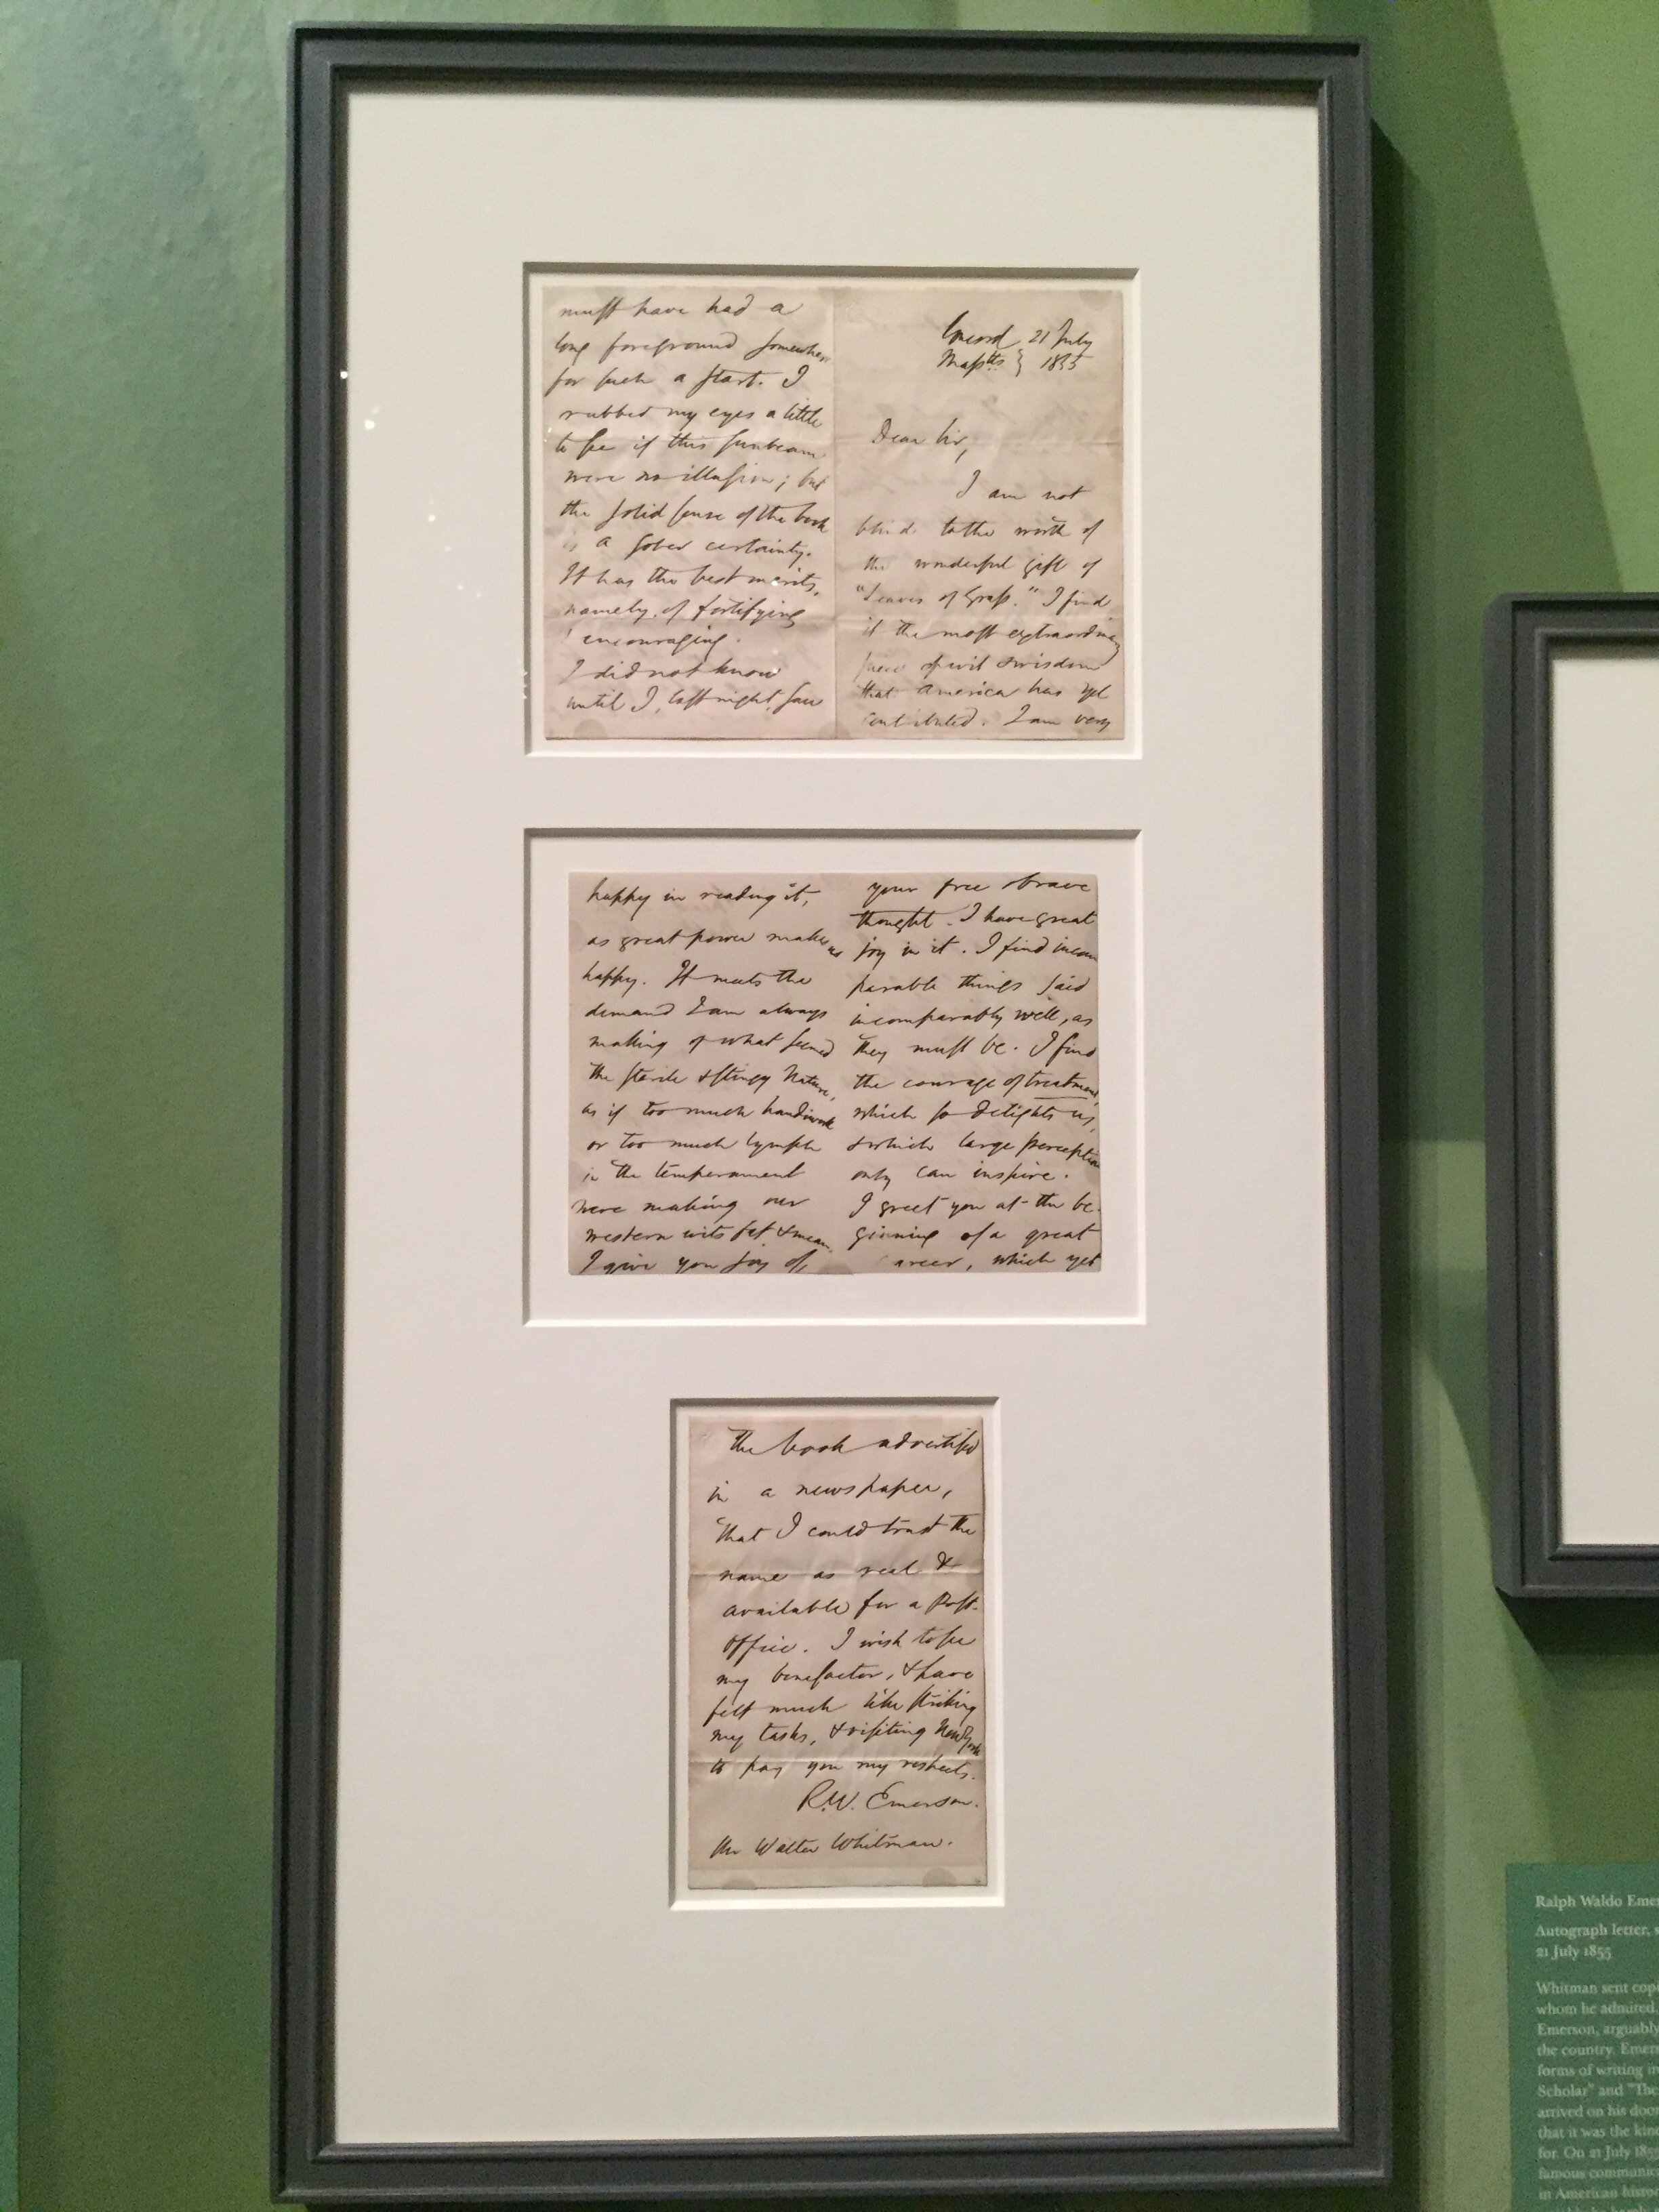 Concord 21 July
Masstts } 1855
Dear Sir,
I am not
blind to the worth of
the wonderful gift of
"Leaves of Grass." I find
it the most extraordinary
piece of wit & wisdom
that America has yet
contributed. I am very
happy in reading it,
as great power makes us
happy. It meets the
demand I am always
making of what seemed
the sterile & stingy Nature,
as if too much handiwork
or too much lymph
in the temperament
were making our
western wits fat & mean.
I give you joy of
your free & brave
thought. I have great
joy in it. I find incom
parable things said
incomparably well, as
they must be. I find
the courage of treatment,
which so delights us,
& which large perception
only can inspire.
I greet you at the be-
ginning of a great
career, which yet
must have had a
long foreground somewhere
for such a start. I
rubbed my eyes a little
to see if this sunbeam
were no illusion; but
the solid sense of the book
is a sober certainty.
It has the best merits,
namely, of fortifying
& encouraging.
I did not know
until I, last night, saw
the book advertised
in a newspaper,
that I could trust the
name as real &
available for a Post-
Office. I wish to see
my benefactor, & have
felt much like striking
my tasks, & visiting New York
to pay you my respects.
R.W. Emerson.
Mr Walter Whitman.
Ralph Waldo Emer
Autograph letter, s
21 July 1855
Whitman sent copi
whom he admired,
Emerson, arguably
the country. Emers
forms of writing in
Scholar" and "The
arrived on his door
that it was the kind
for. On 21 July 1855
famous communic
in American histor